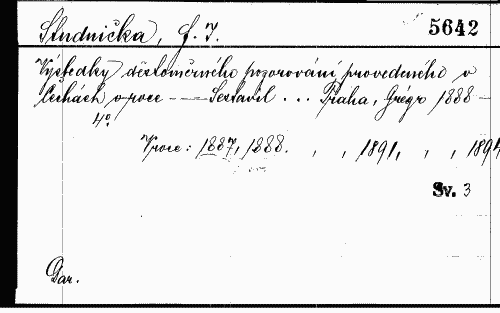 Studnička, F. J. 5642
Výsledky dešťoměrného pozorování provedeného v
Čechách v roce — Sestavil ... Praha, Grégr 1888 —
4º
V roce: 1887, 1888. , , 1891, , , 1894
Sv. 3
Dar.